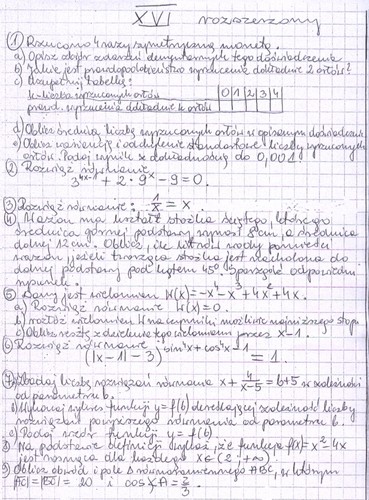 XVI rozszerzony
① Rzucono 4 razy symetryczną monetą.
a) Opisz zbiór zdarzeń elementarnych tego doświadczenia.
b) Jakie jest prawdopodobieństwo wyrzucenia dokładnie 2 orłów?
c) Uzupełnij tabelkę:
k-liczba wyrzuconych orłów 0 1 2 3 4
prawd. wyrzucenia dokładnie k orłów
d) Oblicz średnią liczbę wyrzuconych orłów w opisanym doświadczeniu.
e) Oblicz wariancję i odchylenie standardowe liczby wyrzuconych
orłów. Podaj wynik z dokładnością do 0,001.
② Rozwiąż równanie
+ 2·9ˣ - 9 = 0.
③ Rozwiąż równanie: = x.
④ Wazon ma kształt stożka ściętego, którego
średnica górnej podstawy wynosi 8 cm, a średnica
dolnej 12 cm. Oblicz, ile litrów wody pomieści
wazon, jeżeli tworząca stożka jest nachylona do
dolnej podstawy pod kątem 45°. Sporządź odpowiedni
rysunek.
⑤ Dany jest wielomian W(x) = -x⁴ - x³ + 4x² + 4x.
a) Rozwiąż równanie W(x) = 0.
b) rozłóż wielomian W na czynniki możliwie najniższego stopnia
c) Oblicz resztę z dzielenia tego wielomianu przez x-1.
⑥ Rozwiąż równanie
(|x-1| - 3)^{sin⁴x + cos⁴x - 1} = 1.
⑦ a) Zbadaj liczbę rozwiązań równania x + 4/(x-5) = b+5 w zależności
od parametru b.
b) Wykonaj wykres funkcji y = f(b) określającej zależność liczby
rozwiązań powyższego równania od parametru b.
c) Podaj wzór funkcji y = f(b).
Na podstawie definicji wykaż, że funkcja f(x) = x² - 4x
jest rosnąca dla każdego x ∈ (2; +∞).
Oblicz obwód i pole Δ równoramiennego ABC, w którym
|AC| = |BC| = 20 i cos ∢A = 2/3.